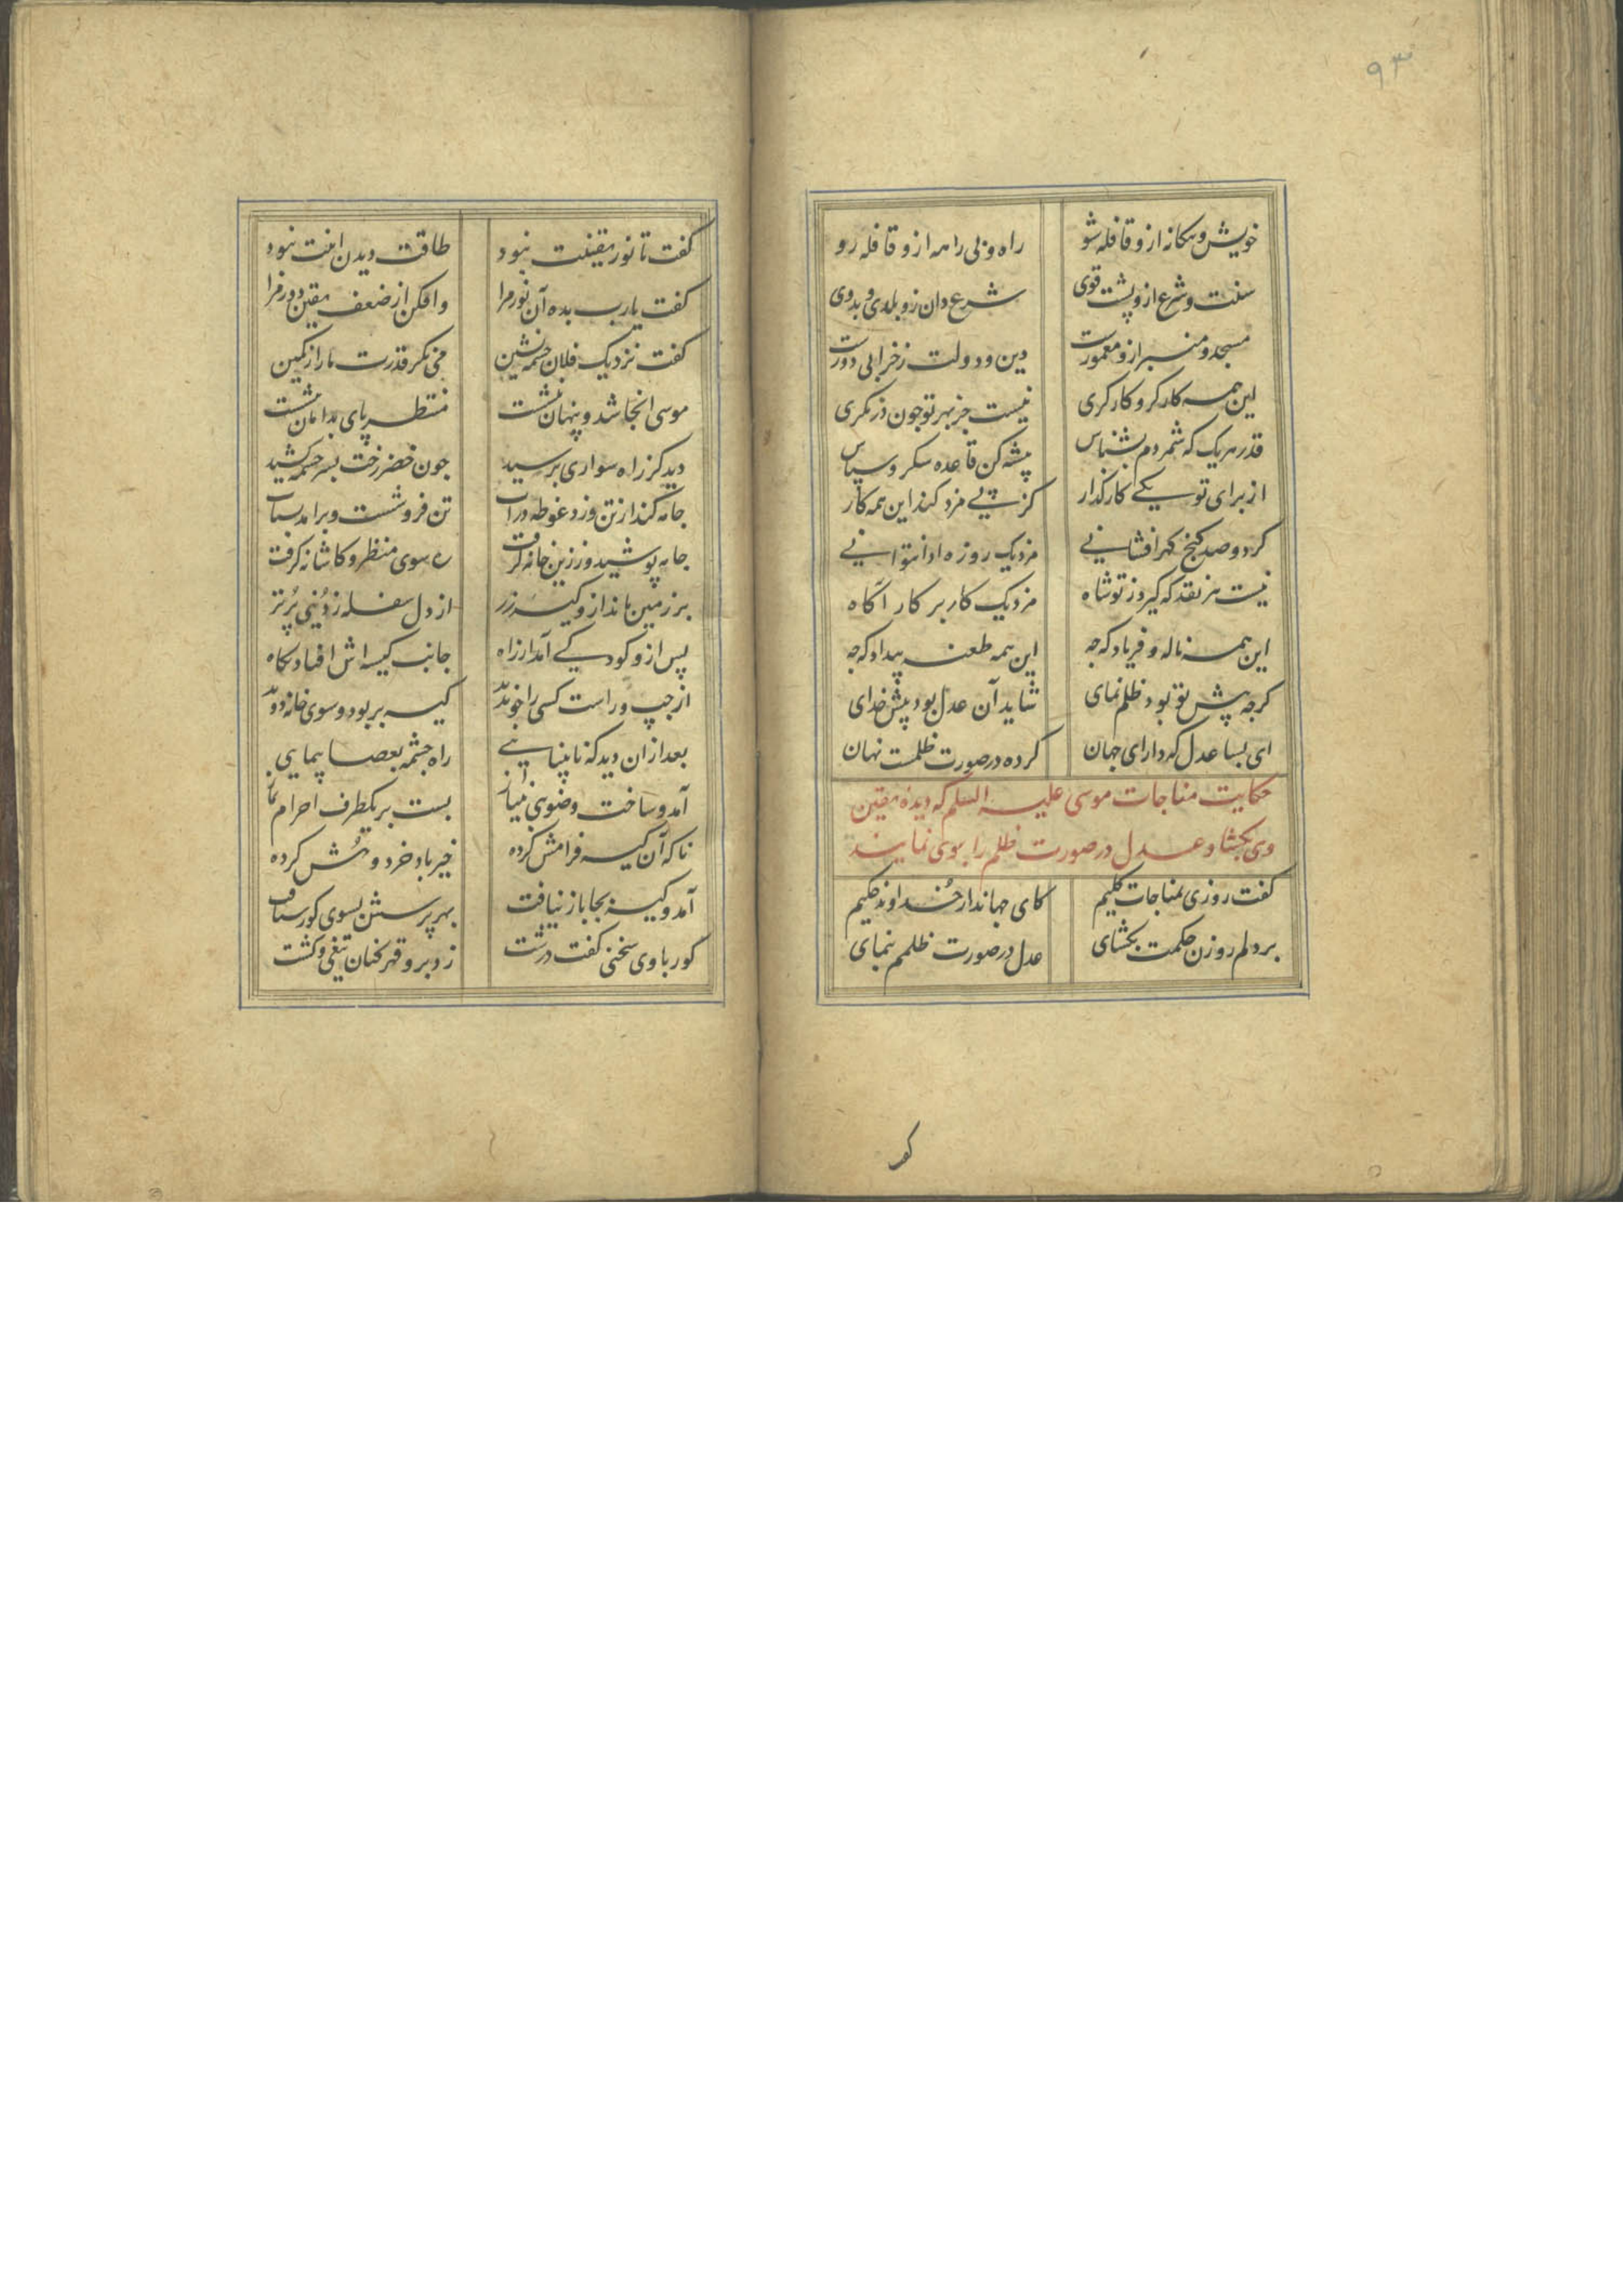 ۹۳
خویش و بیکانه ازو قافله شو راه و بی راهه ازو قافله رو
سنت و شرع ازو پشت قوی شرع دان زو بلدی و بدوی
مسجد و منبر ازو معمورست دین و دولت زخرابی دورست
این همه کارکر و کارکری نیست جز بهر تو چون درنکری
قدر هر یک که شمردم بشناس پیشه کن قاعده شکر و سپاس
از برای تو یکی کارکذار کز پی مزد کند این همه کار
کرد و صد کنج کهر افشانی مزد یک روزه ادا نتوانی
نیست هر نقد که گیرد ز تو شاه مزد یک کار بر کار اکاه
این همه ناله و فریاد که چه این همه طعنه بیداد که چه
کرچه پیش تو بود ظلم نمای شاید آن عدل بود پیش خدای
ای بسا عدل که دارای جهان کرده در صورت ظلمست نهان
حکایت مناجات موسی علیه السلم که دیده یقین
وی بکشا و عدل در صورت ظلم را بوی نمایند
کفت روزی بمناجات کلیم کای جهاندار خداوند حکیم
بر دلم روزن حکمت بکشای عدل در صورت ظلمم بنمای
کفت
کفت تا نور یقینت نبود طاقت دیدن اینت نبود
کفت یارب بده آن نور مرا وافکن از ضعف یقین دور مرا
کفت نزدیک فلان چشمه نشین می نکر قدرت ما را ز کمین
موسی انجا شد و پنهان بنشست منتظر پای بدامان بنشست
دید کز راه سواری برسید چون خضر رخت بسر چشمه کشید
جامه کند از تن و زد غوطه دراب تن فرو شست و برامد بشتاب
جامه پوشید و ززین خانه کرفت ره سوی منظر و کاشانه کرفت
بر زمین ماند ازو کیسه زر از دل سفله ز دنیی پرتر
پس ازو کودکی آمد از راه جانب کیسه اش افتاد نکاه
از چپ و راست کسی را چو ندید کیسه بربود و سوی خانه دوید
بعد از ان دید که نابینایی راه چشمه بعصا پیمایی
آمد و ساخت وضویی بنیاز بست بر یکطرف احرام نماز
ناکه آن کیسه فرامش کرده خیرباد خرد و هش کرده
آمد و کیسه بجا باز نیافت بهر پرسش بسوی کور شتافت
کور با وی سخنی کفت درشت زد برو قهرکنان تیغی و کشت